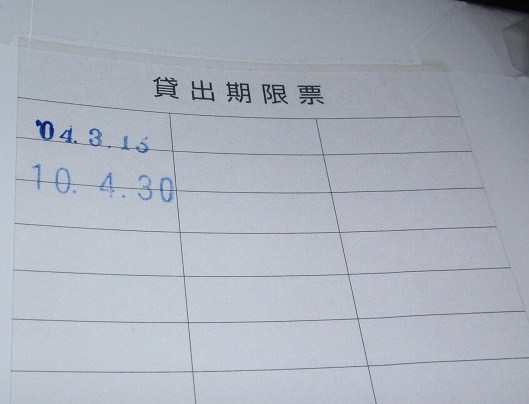 貸出期限票
'04.3.15
10.4.30